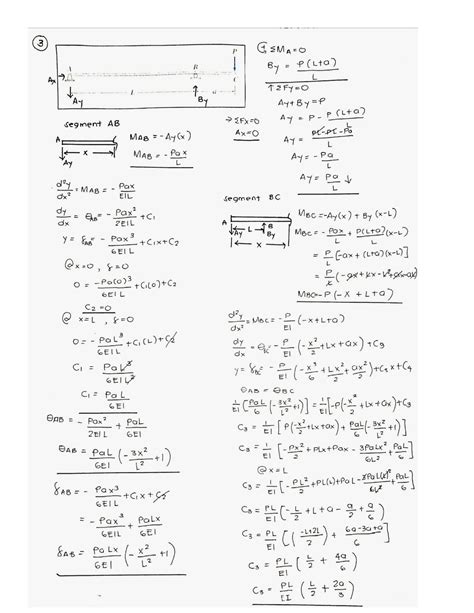 3
P
A
B
C
Ax
Ay
By
L
a
↺ ΣMA=0
By = P(L+a)/L
↑ΣFy=0
Ay+By=P
Ay = P - P(L+a)/L
Ay = PL-PL-Pa/L
Ay = -Pa/L
Ay = Pa/L ↓
→ ΣFx=0
Ax=0
segment AB
A
x
Ay
MAB = -Ay(x)
MAB = -Pax/L
d²y/dx² = MAB = -Pax/EIL
dy/dx = θAB = -Pax²/2EIL + C1
y = δAB = -Pax³/6EIL + C1x+C2
@x=0, δ=0
0 = -Pa(0)³/6EIL + C1(0)+C2
C2=0
@ x=L, δ=0
0 = -PaL³/6EIL + C1(L)+C2
C1 = PaL³/6EIL²
C1 = PaL/6EI
θAB = -Pax²/2EIL + PaL/6EI
θAB = PaL/6EI (-3x²/L² +1)
δAB = -Pax³/6EIL + C1x + C2
= -Pax³/6EIL + PaLx/6EI
δAB = PaLx/6EI (-x²/L² +1)
segment BC
A
Ay
L
B
By
x
MBC = -Ay(x) + By(x-L)
MBC = -Pax/L + P(L+a)/L (x-L)
= P/L [-ax + (L+a)(x-L)]
MBC = -P(-x+L+a)
d²y/dx² = MBC = -P/EI (-x+L+a)
dy/dx = θBC = -P/EI (-x²/2 + Lx + ax) + C3
y = δBC = -P/EI (-x³/6 + Lx²/2 + ax²/2) + C3x + C4
θAB = θBC
1/EI [PaL/6 (-3x²/L² +1)] = 1/EI [-P(-x²/2 + Lx + ax) + C3
C3 = 1/EI [P(-x²/2 + Lx + ax) + PaL/6 (-3x²/L² +1)]
C3 = 1/EI [-Px²/2 + PLx + Pax - 3PaLx²/6L² + PaL/6]
@x=L
C3 = 1/EI [-PL²/2 + PL(L) + PaL - 3PaL(L)²/6L² + PaL/6]
C3 = PL/EI [-L/2 + L + a - a/2 + a/6]
C3 = PL/EI [(-L+2L/2) + 6a-3a+a/6]
C3 = PL/EI [L/2 + 4a/6]
C3 = PL/EI (L/2 + 2a/3)